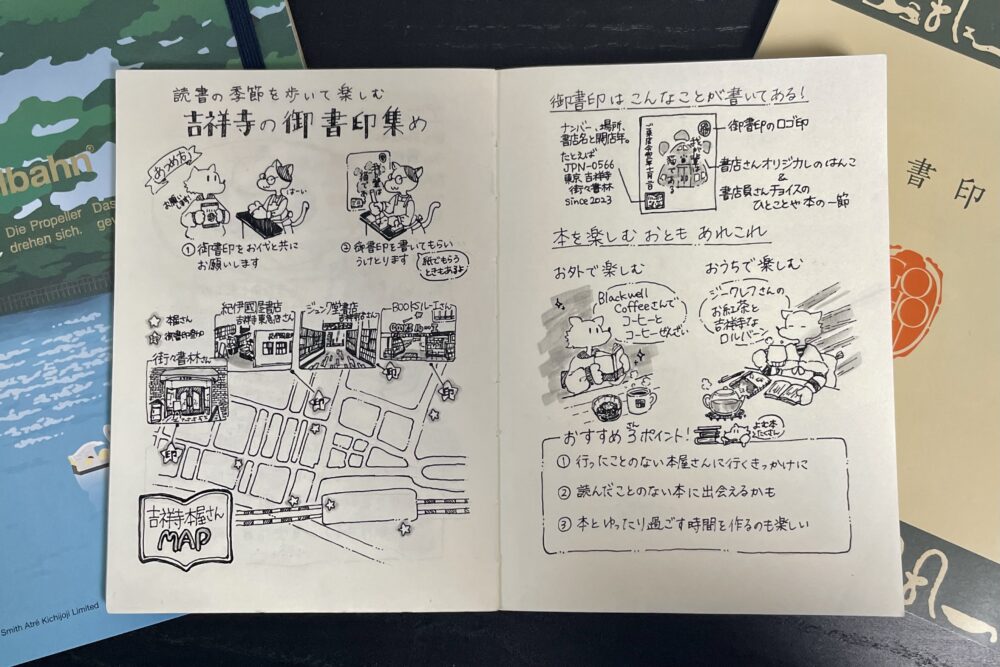 読書の季節を歩いて楽しむ
吉祥寺の御書印集め
あつめ方
お願いします!
はーい
①御書印をお代と共に
お願いします
②御書印を書いてもらい
うけとります
紙でもらう
ときもあるよ
本屋さん
御書印参加
紀伊國屋書店
吉祥寺東急店さん
ジュンク堂書店
吉祥寺店さん
BOOKSルーエさん
街々書林さん
印
印
印
吉祥寺本屋さん
MAP
御書印はこんなことが書いてある!
ナンバー、場所、
書店名と開店年。
たとえば
JPN-0566
東京 吉祥寺
街々書林
since 2023
御書印のロゴ印
書店さんオリジナルのはんこ
&
書店員さんチョイスの
ひとことや本の一節
本を楽しむおとも あれこれ
お外で楽しむ
Blackwell
Coffeeさんで
コーヒーと
コーヒーぜんざい
おうちで楽しむ
ジークレフさんの
お紅茶と
吉祥寺な
ロルバーン
よむ本
たくさん
おすすめ3ポイント!
さん
①行ったことのない本屋さんに行くきっかけに
②読んだことのない本に出会えるかも
③本とゆったり過ごす時間を作るのも楽しい
lbahn®
Die Propeller Das
drehen sich. gev
Smith Atré Kichijoji Limited
書印
GO
SHO